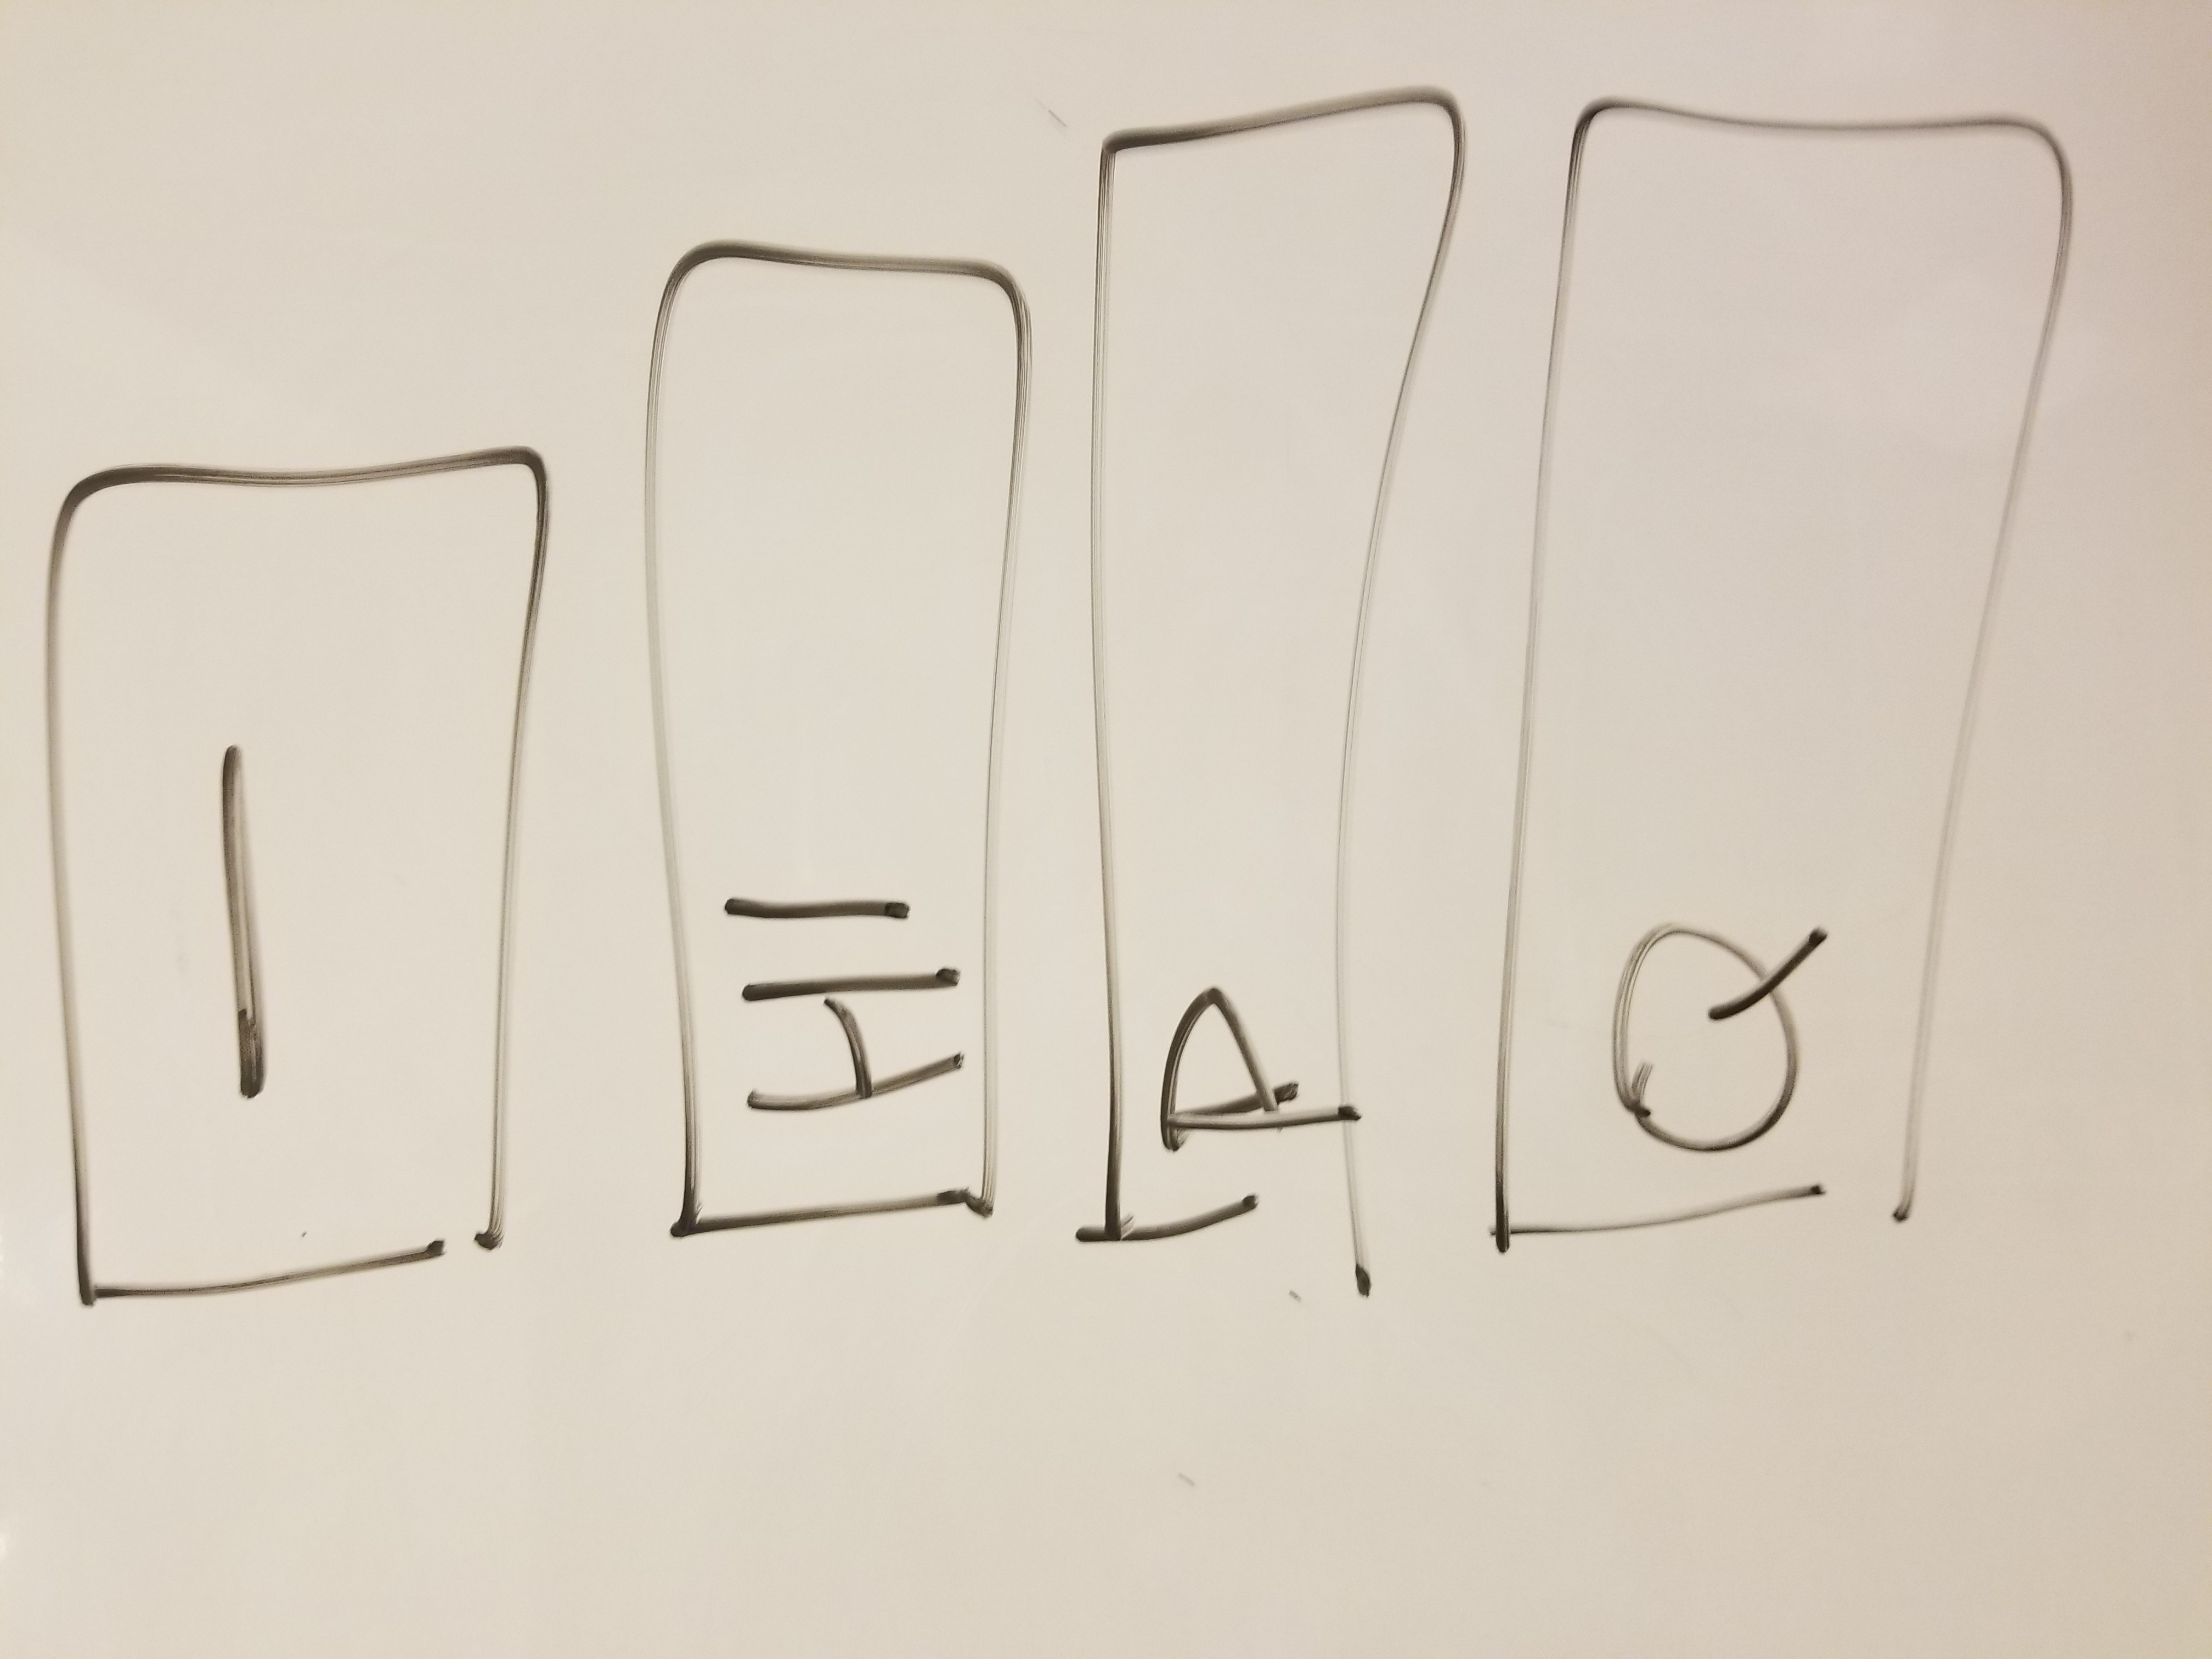 —
HI
P
Q